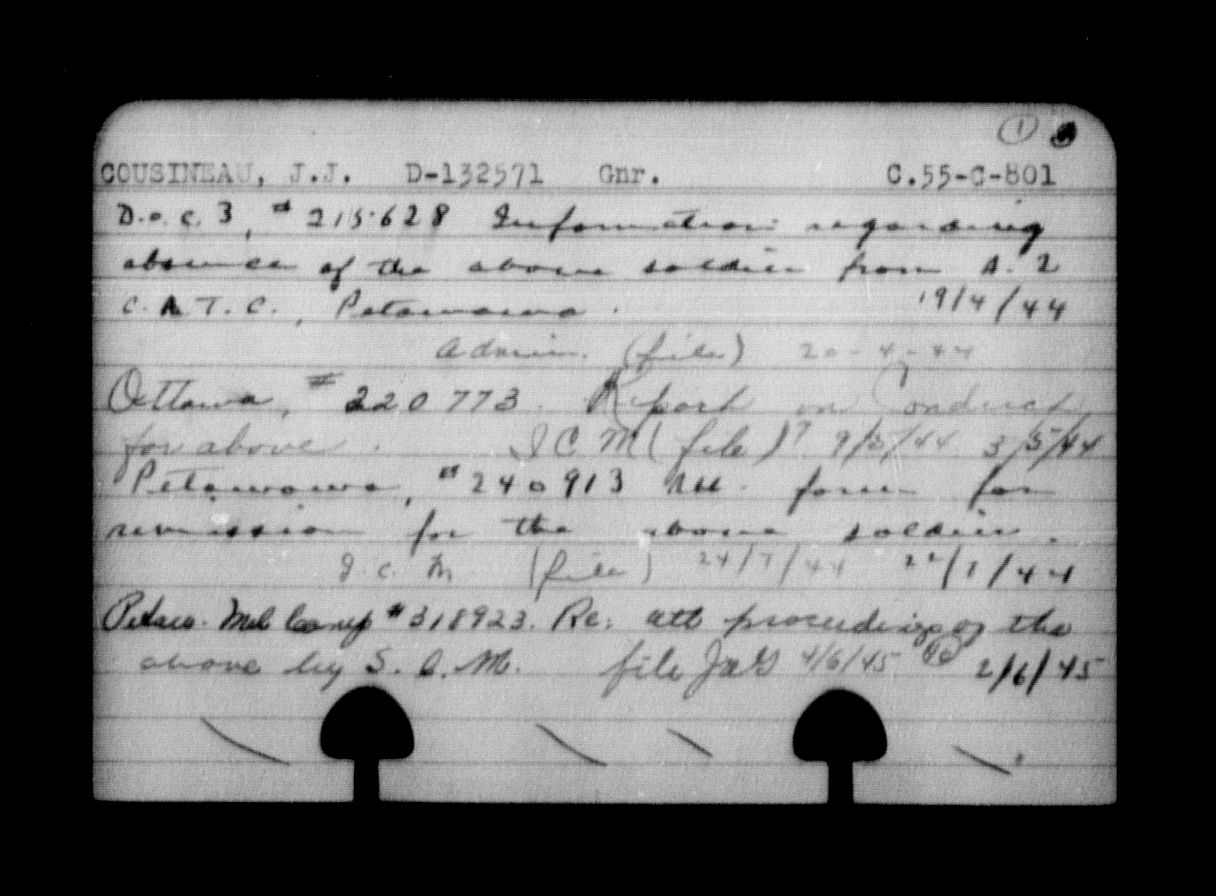 1
COUSINEAU, J.J. D-132571 Gnr. C.55-C-801
D.o.c. 3, # 215628 Information regarding
absence of the above soldier from A. 2
C.A.T.C., Petawawa. 19/4/44
Admin. (file) 20-4-44
Ottawa, # 220773. Report on Conduct
for above. J C M (file) 9/5/44 3/5/44
Petawawa, # 240913 Att. form for
remission for the above soldier.
J. C. M. (file) 24/7/44 22/7/44
Petaw. Mil Camp # 318923. Re: att proceedings of the
above by S. C. M. file JAG 4/6/45 2/6/45